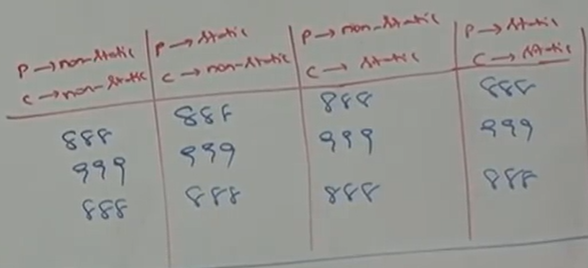 P → non-static | P → static | P → non-static | P → static
C → non-static | C → non-static | C → static | C → static
888 | 888 | 888 | 888
999 | 999 | 999 | 999
888 | 888 | 888 | 888